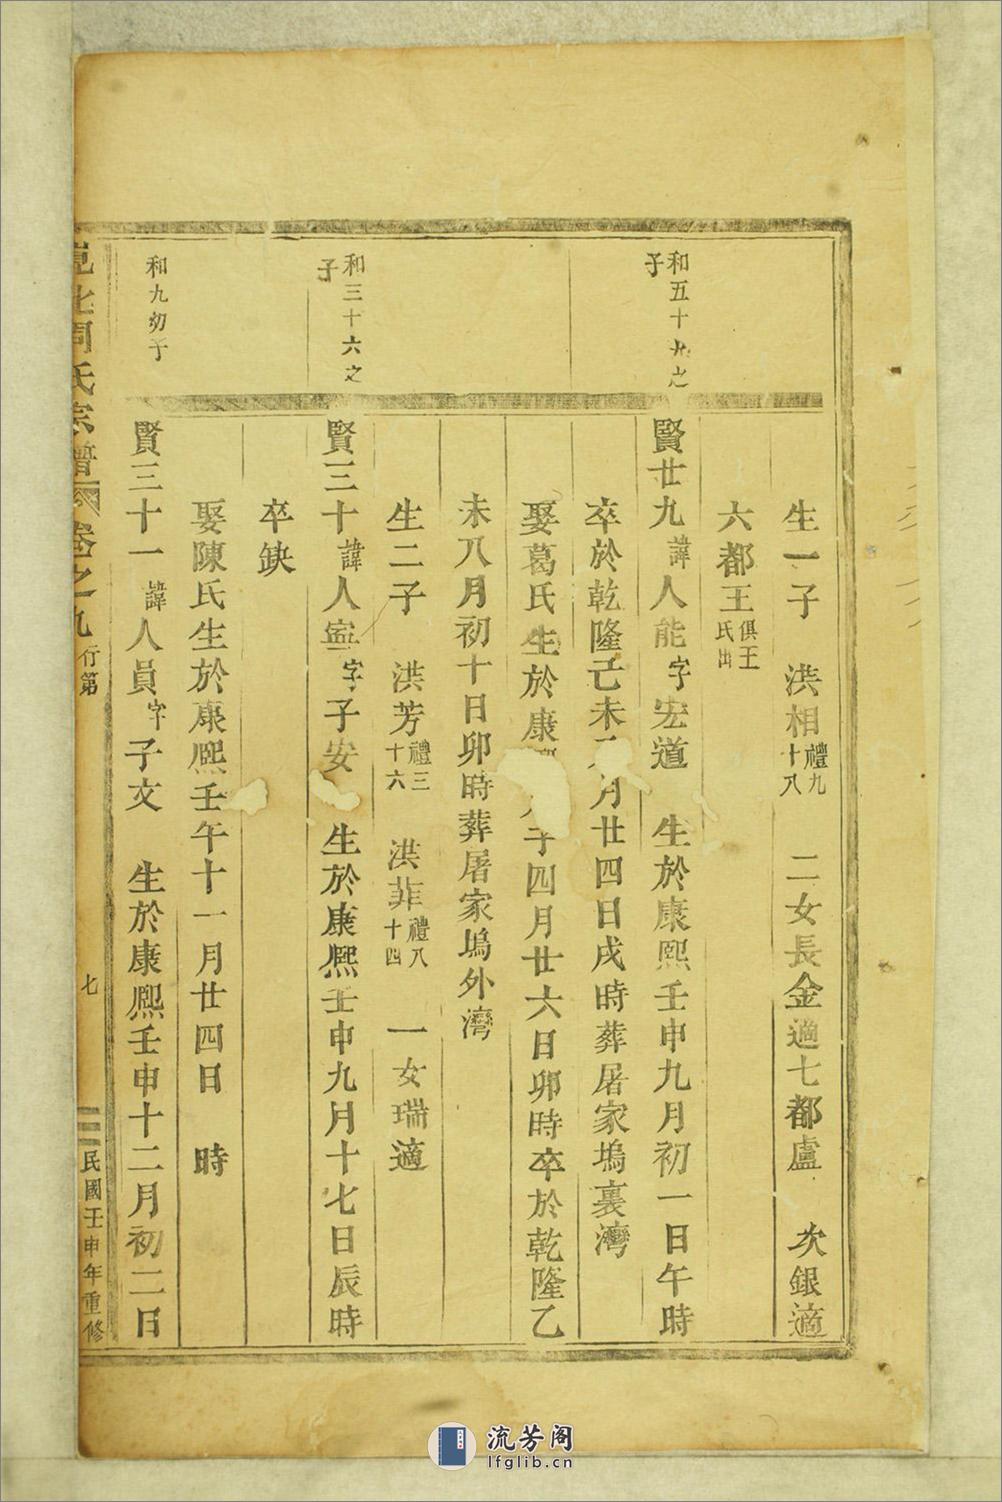 生一子 洪相禮九十八 二女長金適七都盧 次銀適
六都王俱王氏出
和五十九之子
賢廿九諱人能字宏道 生於康熙壬申九月初一日午時
卒於乾隆己未 月廿四日戌時葬屠家塢裏灣
娶葛氏生於康 子四月廿六日卯時卒於乾隆乙
未八月初十日卯時葬屠家塢外灣
生二子 洪芳禮三十六 洪菲禮八十四 一女瑞適
和三十六之子
賢三十諱人寍字子安 生於康熙壬申九月十七日辰時
卒缺
娶陳氏生於康熙壬午十一月廿四日 時
和九幼子
賢三十一諱人員字子文 生於康熙壬申十二月初二日
周氏宗譜 卷之九 行第 七 民國壬申年重修
流芳阁
lfglib.cn